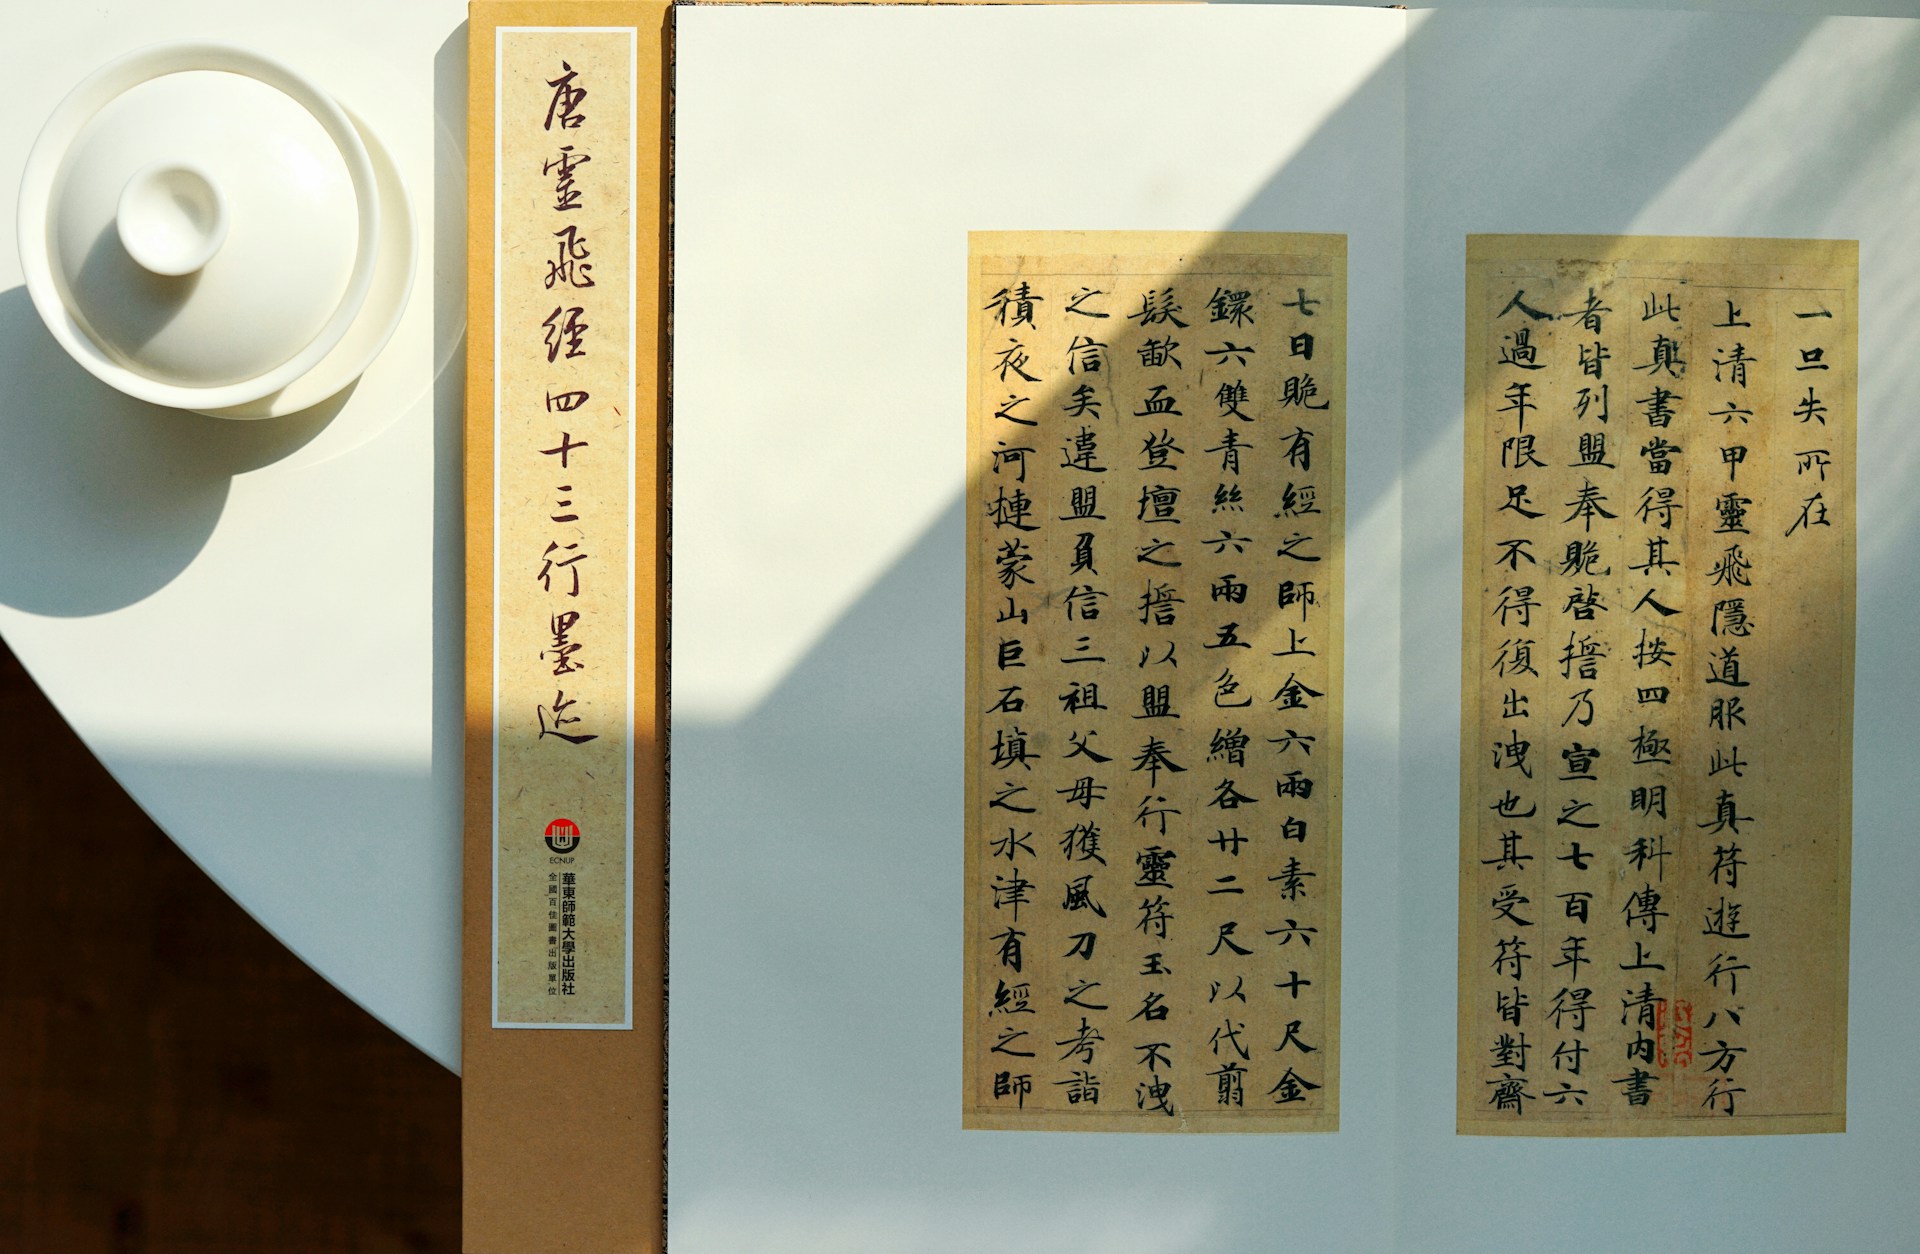 唐靈飛經四十三行墨迹
ECNUP
華東師範大學出版社
全國百佳圖書出版單位
一旦失所在
上清六甲靈飛隱道服此真符遊行八方行
此真書當得其人按四極明科傳上清內書
者皆列盟奉賝啓擔乃宣之七百年得付六
人過年限足不得復出洩也其受符皆對齋
七日賝有經之師上金六兩白素六十尺金
鐶六雙青絲六兩五色繒各廿二尺以代翦
髮歃血登壇之擔以盟奉行靈符玉名不洩
之信矣違盟負信三祖父母獲風刀之考詣
積夜之河摙蒙山巨石填之水津有經之師